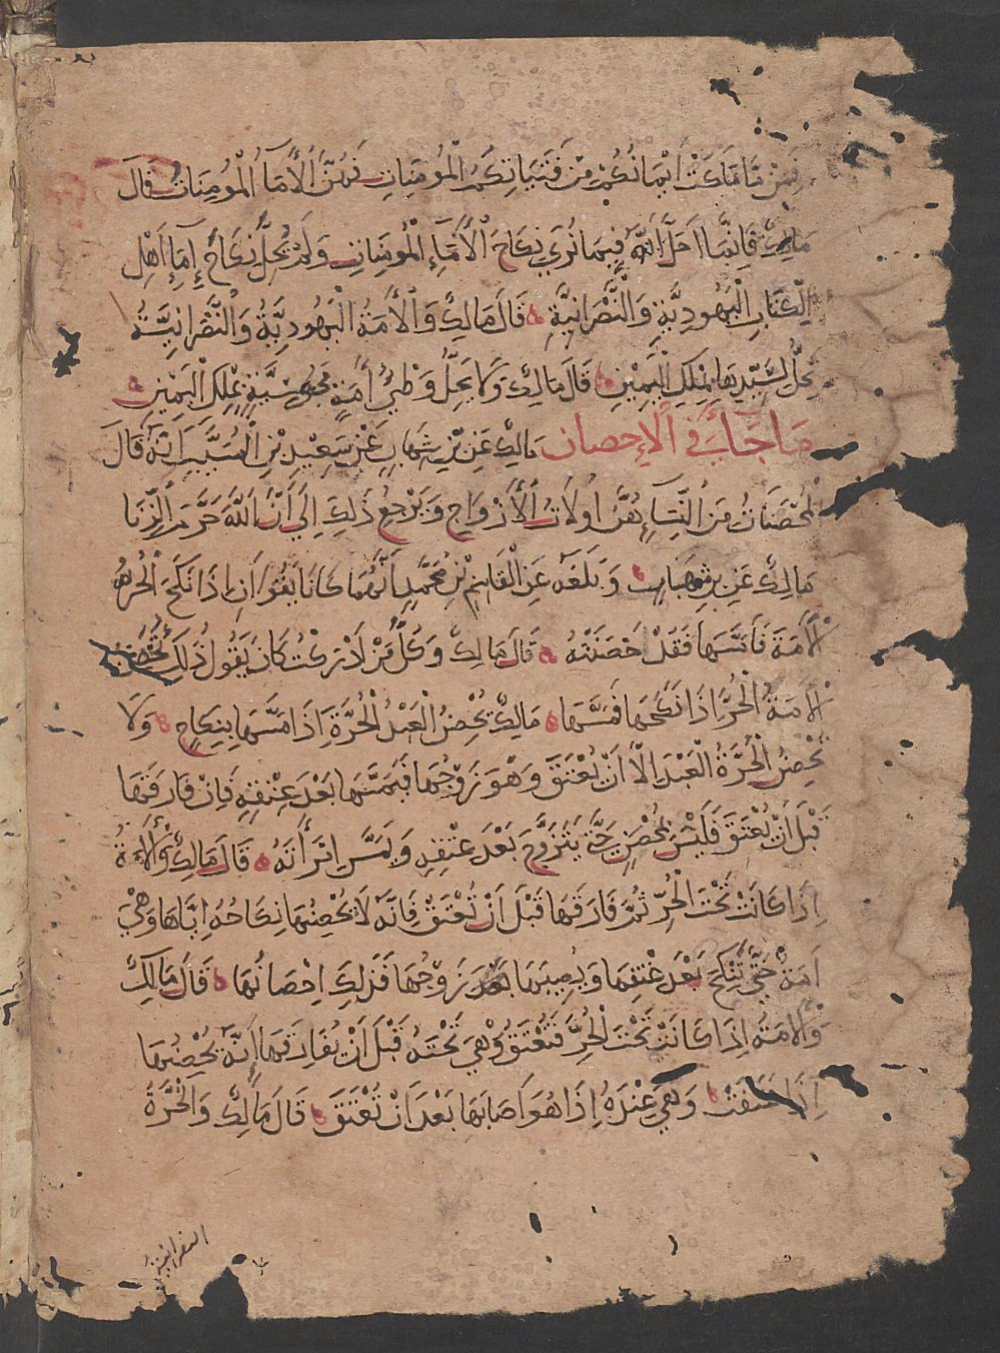 فَمِنْ مَّا مَلَكَتْ أَيْمَانُكُمْ مِّنْ فَتَيَاتِكُمُ الْمُومِنَاتِ فَهُنَّ الْأِمَآءُ الْمُومِنَاتُ قَالَ
مَالِكٌ فَإِنَّمَا أَحَلَّ اللَّهُ فِيمَا نُرَى نِكَاحَ الْأِمَآءِ الْمُومِنَاتِ وَلَمْ يُحِلَّ نِكَاحَ إِمَآءِ أَهْلِ
الْكِتَابِ الْيَهُودِيَّةِ وَالنَّصْرَانِيَّةِ ه قَالَ مَالِكٌ وَالْأَمَةُ الْيَهُودِيَّةُ وَالنَّصْرَانِيَّةُ
تَحِلُّ لِسَيِّدِهَا بِمِلْكِ الْيَمِينِ ه قَالَ مَالِكٌ وَلَا يَحِلُّ وَطْيُ أَمَةٍ مَجُوسِيَّةٍ بِمِلْكِ الْيَمِينِ ه
مَا جَاءَ فِي الْإِحْصَانِ مَالِكٌ عَنِ ابْنِ شِهَابٍ عَنْ سَعِيدِ بْنِ الْمُسَيَّبِ أَنَّهُ قَالَ
الْمُحْصَنَاتُ مِنَ النِّسَآءِ هُنَّ أُولَاتُ الْأَزْوَاجِ وَيَرْجِعُ ذَلِكَ إِلَى أَنَّ اللَّهَ حَرَّمَ الزِّنَا
مَالِكٌ عَنِ ابْنِ شِهَابٍ ه وَبَلَغَهُ عَنِ الْقَاسِمِ بْنِ مُحَمَّدٍ أَنَّهُمَا كَانَا يَقُولَانِ إِذَا نَكَحَ الْحُرُّ
الْأَمَةَ فَمَسَّهَا فَقَدْ أَحْصَنَتْهُ ه قَالَ مَالِكٌ وَكُلُّ مَنْ أَدْرَكْتُ كَانَ يَقُولُ ذَلِكَ تُحْصِنُ
الْأَمَةُ الْحُرَّ إِذَا نَكَحَهَا فَمَسَّهَا ه مَالِكٌ يُحْصِنُ الْعَبْدُ الْحُرَّةَ إِذَا مَسَّهَا بِنِكَاحٍ ه وَلَا
تُحْصِنُ الْحُرَّةُ الْعَبْدَ إِلَّا أَنْ يُعْتَقَ وَهْوَ زَوْجُهَا فَيَمَسَّهَا بَعْدَ عِتْقِهِ فَإِنْ فَارَقَهَا
قَبْلَ أَنْ يُعْتَقَ فَلَيْسَ بِمُحْصَنٍ حَتَّى يَتَزَوَّجَ بَعْدَ عِتْقِهِ وَيَمَسَّ امْرَأَتَهُ ه قَالَ مَالِكٌ وَالْأَمَةُ
إِذَا كَانَتْ تَحْتَ الْحُرِّ ثُمَّ فَارَقَهَا قَبْلَ أَنْ تُعْتَقَ فَإِنَّهُ لَا يُحْصِنُهَا نِكَاحُهُ إِيَّاهَا وَهْيَ
أَمَةٌ حَتَّى تُنْكَحَ بَعْدَ عِتْقِهَا وَيُصِيبَهَا بَعْدَ زَوْجُهَا فَذَلِكَ إِحْصَانُهَا ه قَالَ مَالِكٌ
وَالْأَمَةُ إِذَا كَانَتْ تَحْتَ الْحُرِّ فَتُعْتَقُ وَهْيَ تَحْتَهُ قَبْلَ أَنْ يُفَارِقَهَا إِنَّهُ يُحْصِنُهَا
إِذَا عَتَقَتْ ه وَهْيَ عِنْدَهُ إِذَا هُوَ أَصَابَهَا بَعْدَ أَنْ تُعْتَقَ ه قَالَ مَالِكٌ وَالْحُرَّةُ
النصرانية